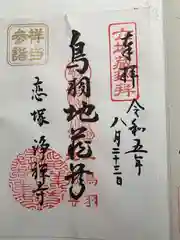 奉拝
令和五年
八月二十三日
鳥羽地蔵尊
祥当
参詣
恋塚 浄禅寺